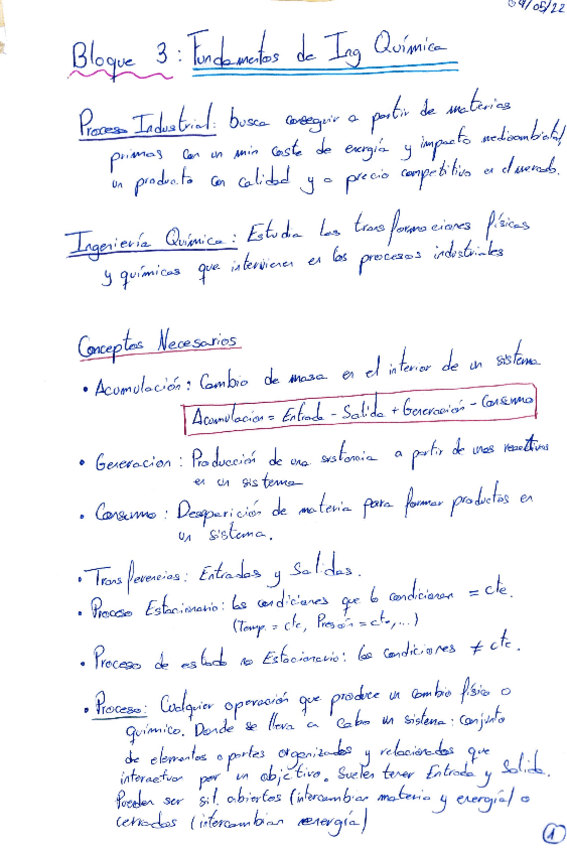 09/05/22
Bloque 3: Fundamentos de Ing Química
Proceso Industrial: busca conseguir a partir de materias
primas con un min coste de energía y impacto medioambiental,
un producto con calidad y a precio competitivo en el mercado.
Ingeniería Química: Estudia las transformaciones físicas
y químicas que intervienen en los procesos industriales
Conceptos Necesarios
• Acumulación: Cambio de masa en el interior de un sistema
Acumulacion = Entrada - Salida + Generación - Consumo
• Generacion: Producción de una sustancia a partir de unos reactivos
en un sistema
• Consumo: Desaparición de materia para formar productos en
un sistema.
• Transferencias: Entradas y Salidas.
• Proceso Estacionario: las condiciones que lo condicionan = cte.
(Temp. = cte, Presión = cte, ...)
• Proceso de estado no Estacionario: las condiciones ≠ cte.
• Proceso: Cualquier operación que produce un cambio físico o
químico. Donde se lleva a cabo un sistema: conjunto
de elementos o partes organizados y relacionados que
interactuan por un objetivo. Suelen tener Entrada y Salida.
Pueden ser sit. abiertos (intercambian materia y energía) o
cerrados (intercambian energía)
1